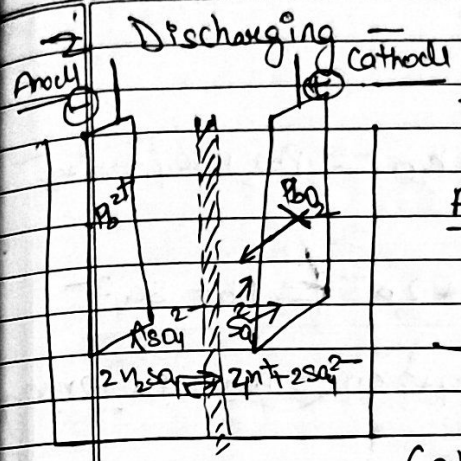 Discharging
Anode
Cathode
Pb²⁺
PbO₂
SO₄²⁻
SO₄²⁻
2H₂SO₄ ⇌ 2H⁺ + 2SO₄²⁻